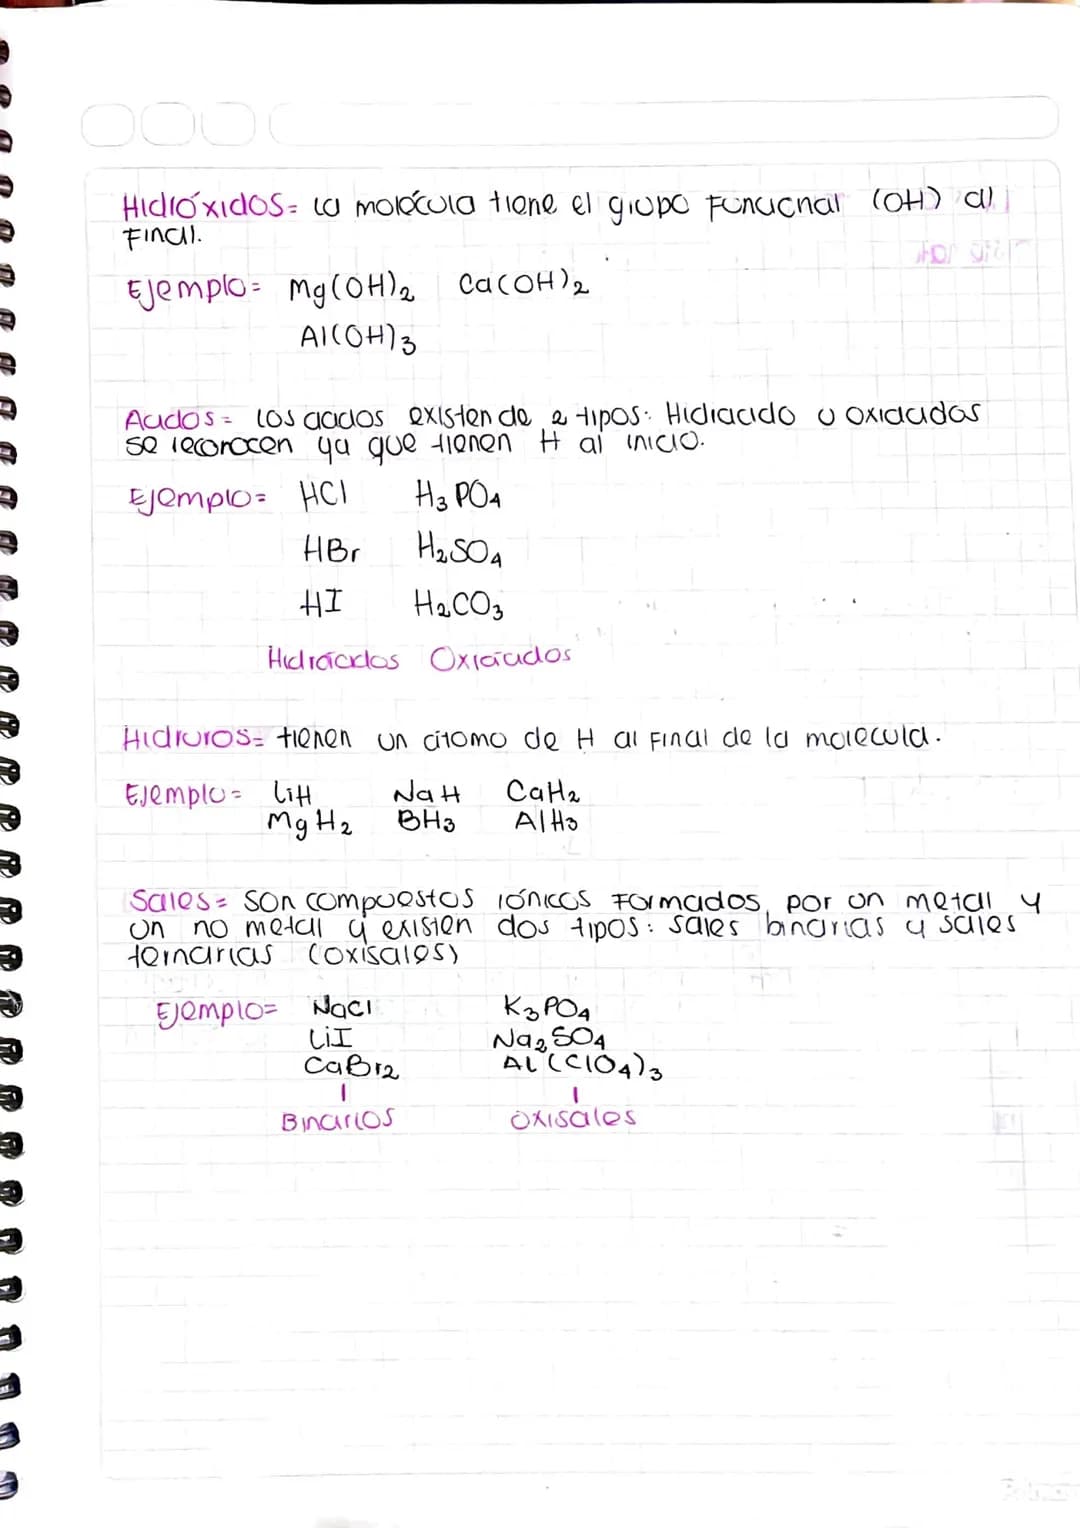 Hidróxidos= la molécula tiene el grupo Funucnal (OH) al
Final.
Ejemplo= Mg(OH)2 Ca(OH)2
Al(OH)3
Acidos= Los acidos existen de 2 tipos: Hidracido u oxiacidos
se reconocen ya que tienen H al inicio.
Ejemplo= HCl H3PO4
HBr H2SO4
HI H2CO3
Hidrácidos Oxiácidos
Hidruros= tienen un átomo de H al Final de la molecula.
Ejemplo= LiH NaH CaH2
MgH2 BH3 AlH3
Sales= son compuestos iónicos Formados por un metal y
un no metal y existen dos tipos: sales binarias y sales
ternarias (oxisales)
Ejemplo= NaCl K3PO4
LiI Na2SO4
CaBr2 AL(ClO4)3
Binarios Oxisales